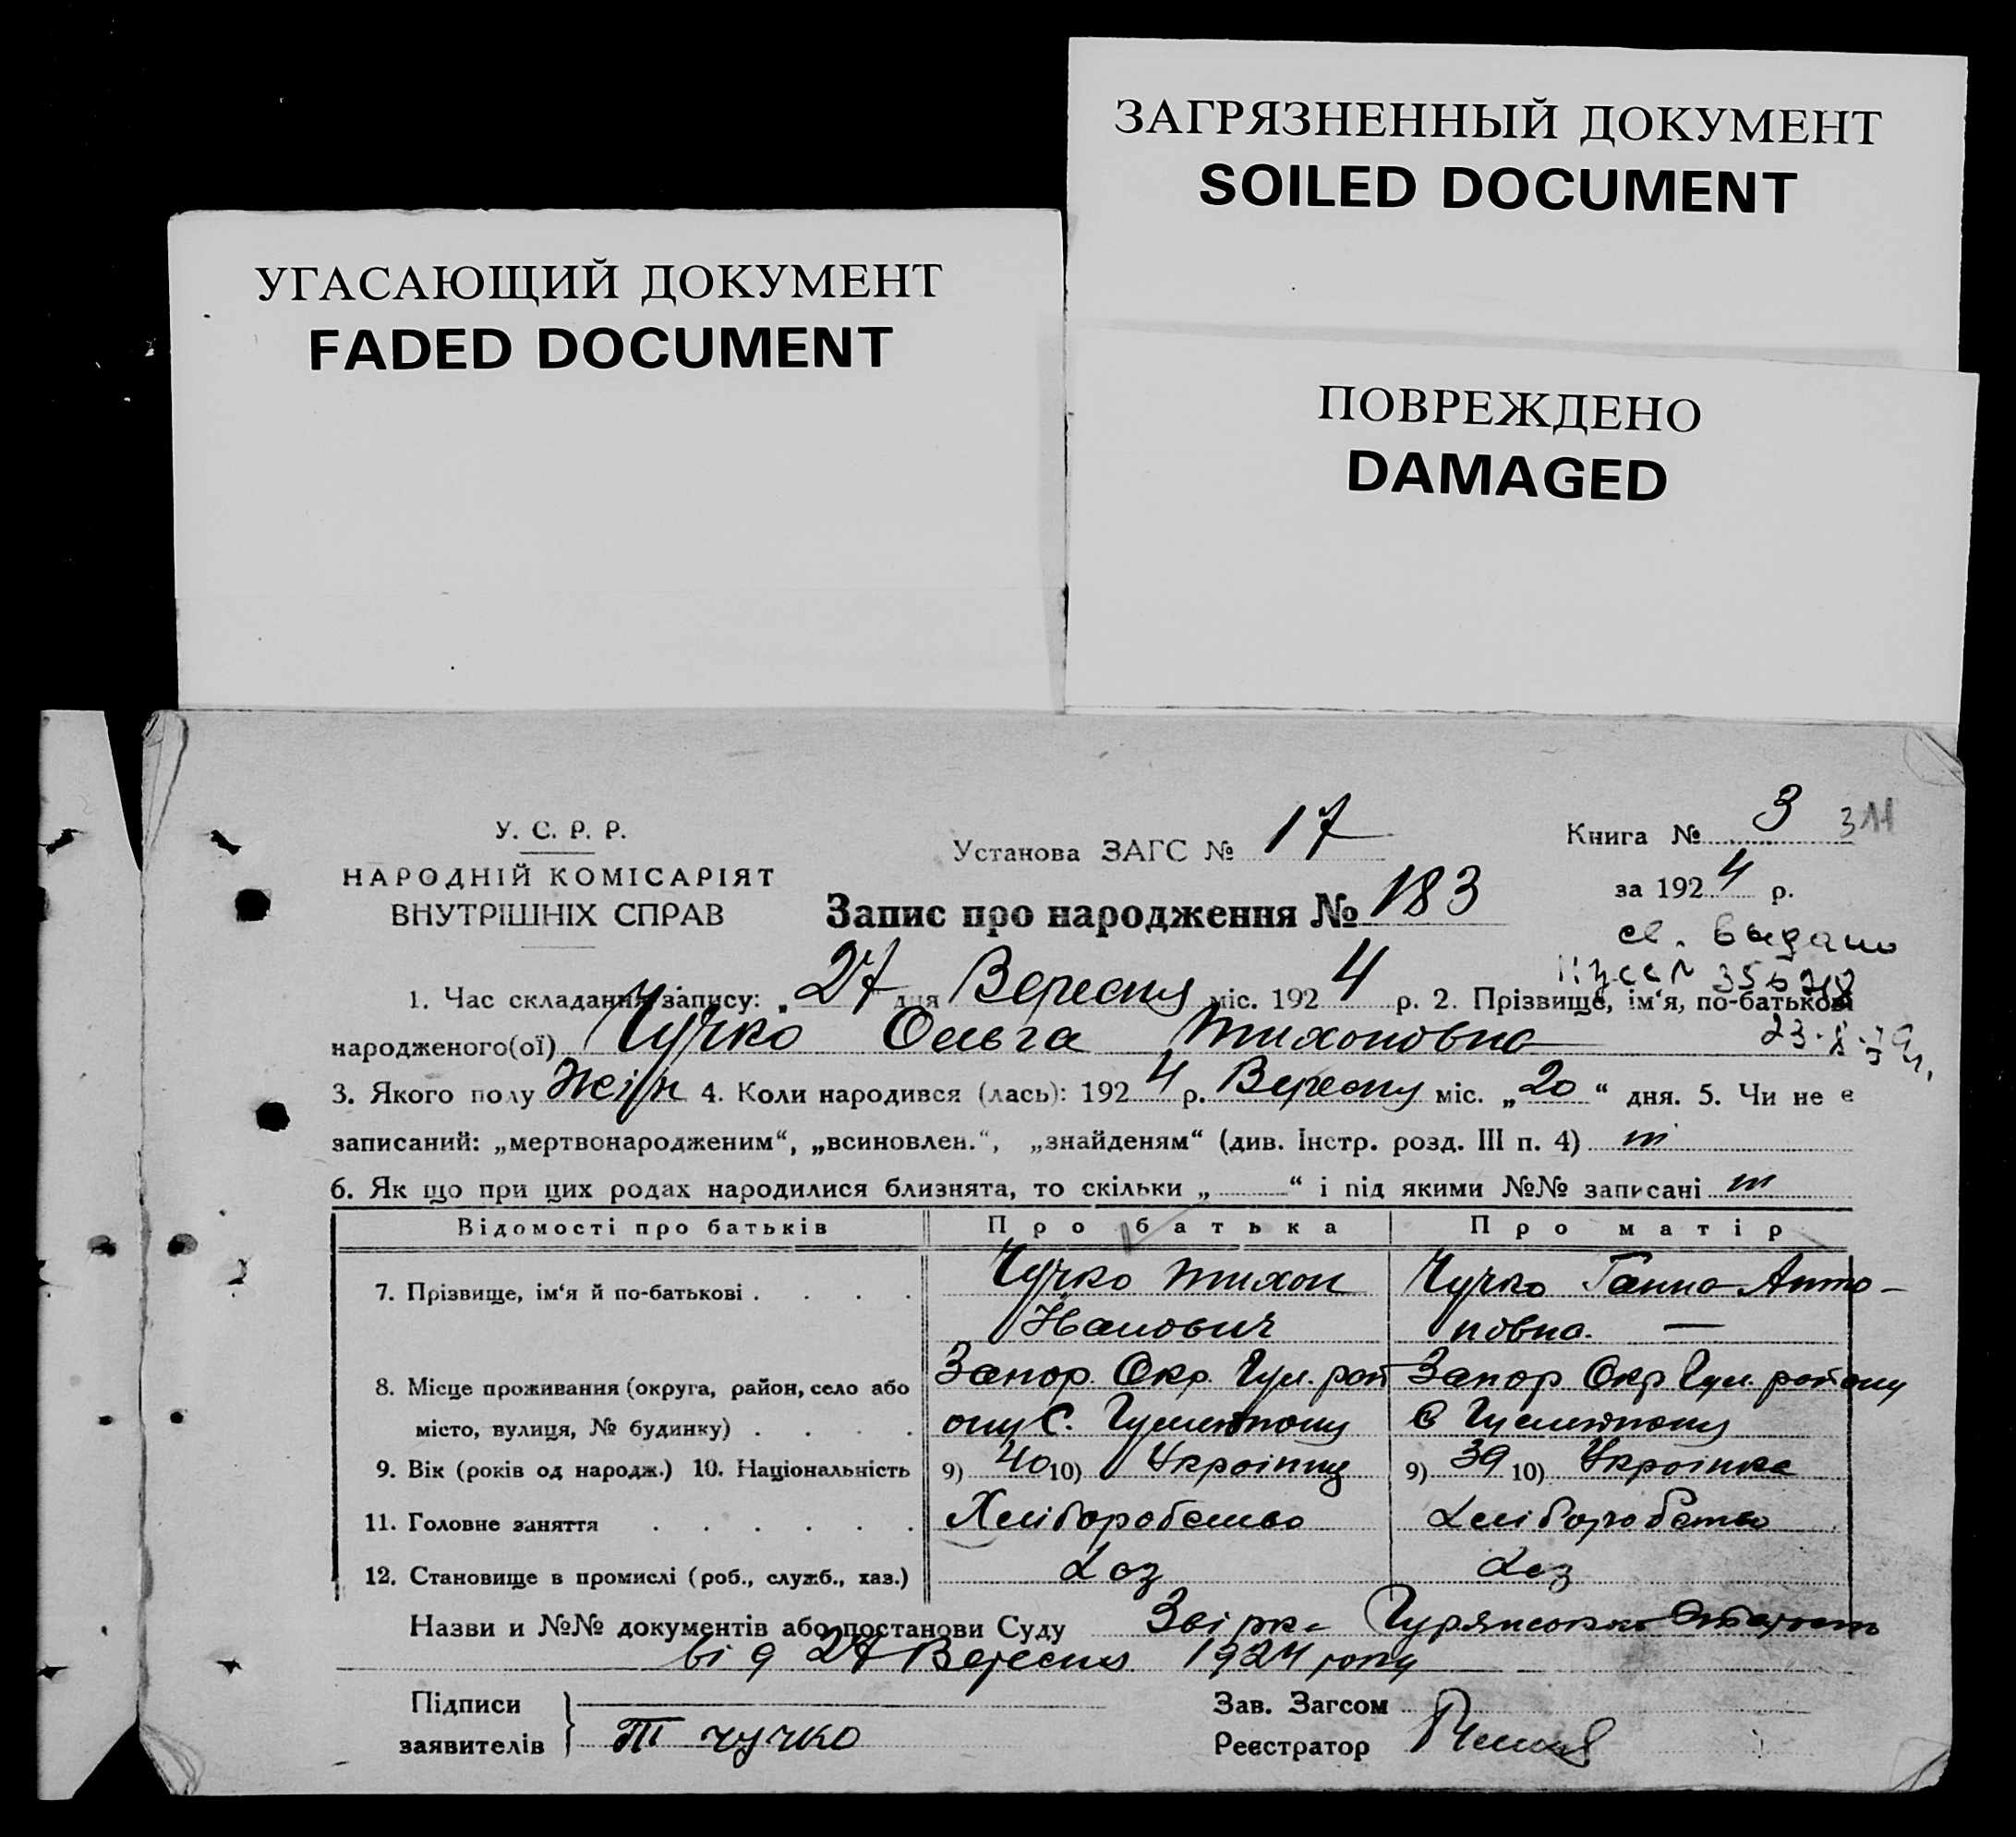 ЗАГРЯЗНЕННЫЙ ДОКУМЕНТ
SOILED DOCUMENT
УГАСАЮЩИЙ ДОКУМЕНТ
FADED DOCUMENT
ПОВРЕЖДЕНО
DAMAGED
У. С. Р. Р.
НАРОДНІЙ КОМІСАРІЯТ
ВНУТРІШНІХ СПРАВ
Установа ЗАГС № 17
Запис про народження № 183
Книга № 3 311
за 1924 р.
св. выдано
23.
1. Час складання запису: „27 дня Вересня міс. 1924 р. 2. Прізвище, ім‘я, по-батькові
народженого(ої) Чучко Ольга Тихоновна
3. Якого полу Жін 4. Коли народився (лась): 1924 р. Вересня міс. „20“ дня. 5. Чи не є
записаний: „мертвонародженим“, „всиновлен.“, „знайденям“ (див. Інстр. розд. III п. 4)
6. Як що при цих родах народилися близнята, то скільки „ “ і під якими №№ записані
Відомості про батьків Про батька Про матір
7. Прізвище, ім‘я й по-батькові . . . . Чучко Тихон Чучко Ганна Анто-
Іванович новна. —
8. Місце проживання (округа, район, село або Запор. Окр. рай Запор Окр району
місто, вулиця, № будинку) . . . . ону С. с
9. Вік (років од народж.) 10. Національність 9) 40 10) Українець 9) 39 10) Українка
11. Головне заняття . . . . . . Хліборобство Хліборобство
12. Становище в промислі (роб., служб., хаз.) Хаз Хаз
Назви и №№ документів або постанови Суду
від 27 Вересня 1924 року
Підписи
заявителів } Т Чучко
Зав. Загсом
Реєстратор